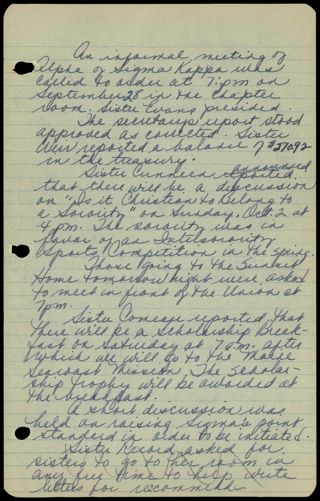 An informal meeting of
Alpha of Sigma Kappa was
called to order at 7:pm on
September 28 in the chapter
room. Sister Evans presided.
The secretary's report stood
approved as corrected. Sister
reported a balance of $270.92
in the treasury.
Sister Cunneen reported announced
that there will be a discussion
on "Is it Christian to belong to
a Sorority" on Sunday, Oct. 2 at
4 pm. The sorority was in
favor of an Intersorority
Sports Competition in the spring.
Those going to the Sunset
Home tomorrow night were asked
to meet in front of the Union at
7pm.
Sister reported that
there will be a Scholarship Break-
fast on Saturday at 7 a.m. after
which we will go to the Maine
Seacoast Mission. The Scholar-
ship trophy will be awarded at
the breakfast.
A short discussion was
held on raising Sigma's point
standard in order to be initiated.
Sister Record asked for
sisters to go to her room in
any free time to help write
letters for recommend-